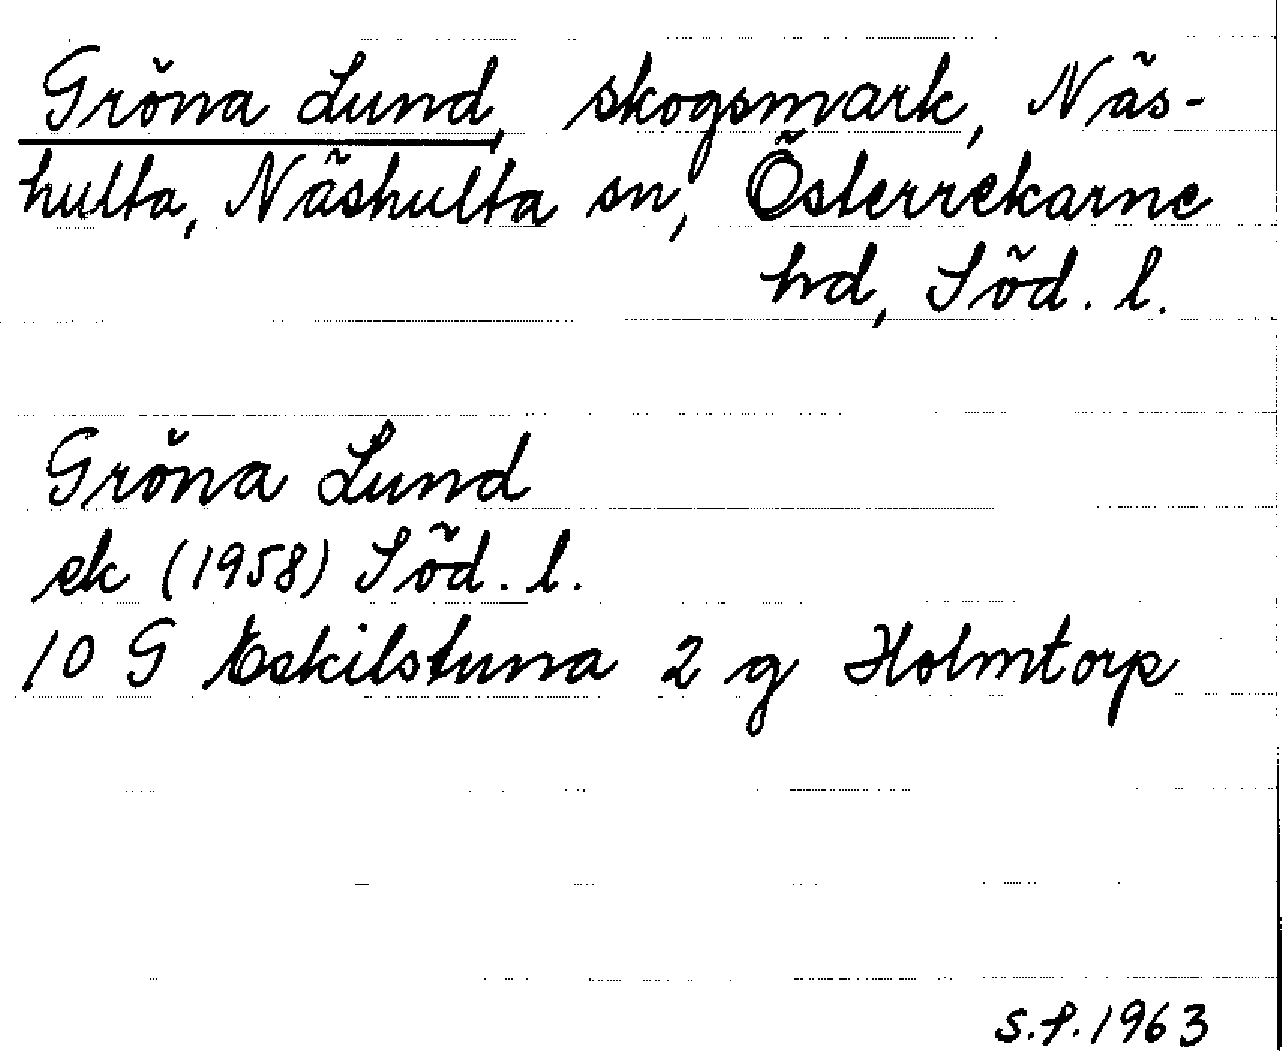 Gröna Lund, skogsmark, Näs-
hulta, Näshulta sn, Österrekarne
hd, Söd. l.
Gröna Lund
ek (1958) Söd. l.
10 G Eskilstuna 2 g Holmtorp
S.P. 1963